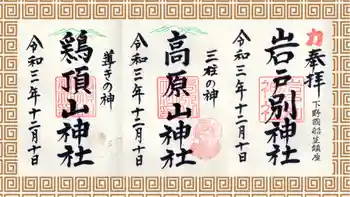 奉拝
下野國船生鎮座
岩戸別神社
令和三年十二月十日
三柱の神
高原山神社
令和三年十二月十日
導きの神
鶏頂山神社
令和三年十二月十日